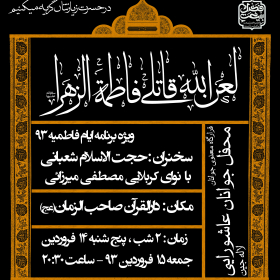 در حسرت زیارتتان گریه میکنیم
لعن الله قاتلی فاطمة الزهرا
ویژه برنامه ایام فاطمیه ۹۳
سخنران : حجت الاسلام شعبانی
با نوای کربلایی مصطفی میرزائی
مکان : دارالقرآن صاحب الزمان (عج)
زمان : ۲ شب ، پنج شنبه ۱۴ فروردین
جمعه ۱۵ فروردین ۹۳ - ساعت ۲۰:۳۰
قرارگاه معنوی جوانان
محفل جوانان عاشورایی
لاله جین